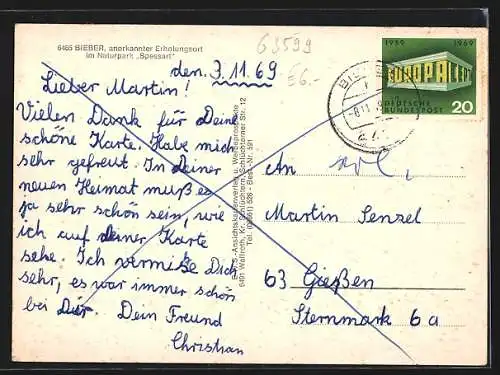 6465 BIEBER, anerkannter Erholungsort
im Naturpark „Spessart"
63599
E6.-
den 3.11.69
Lieber Martin!
Vielen Dank für Deine
schöne Karte. Habe mich
sehr gefreut. In deiner
neuen Heimat muß es
ja sehr schön sein, wie
ich auf deiner Karte
sehe. Ich vermiße Dich
sehr, es war immer schön
bei Dir. Dein Freund
Christian
Ansichtskartenverlag u. Werbeprospekte
6491 Wallroth, Kr. Schlüchtern, Schlüchterner Str. 12
1959 1969
EUROPA CEPT
DEUTSCHE
BUNDESPOST 20
An
Martin Senzel
63 Gießen
Sternmark 6a